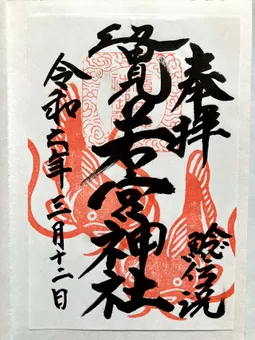 奉拝
鯰伝説
若宮神社
令和六年三月十二日